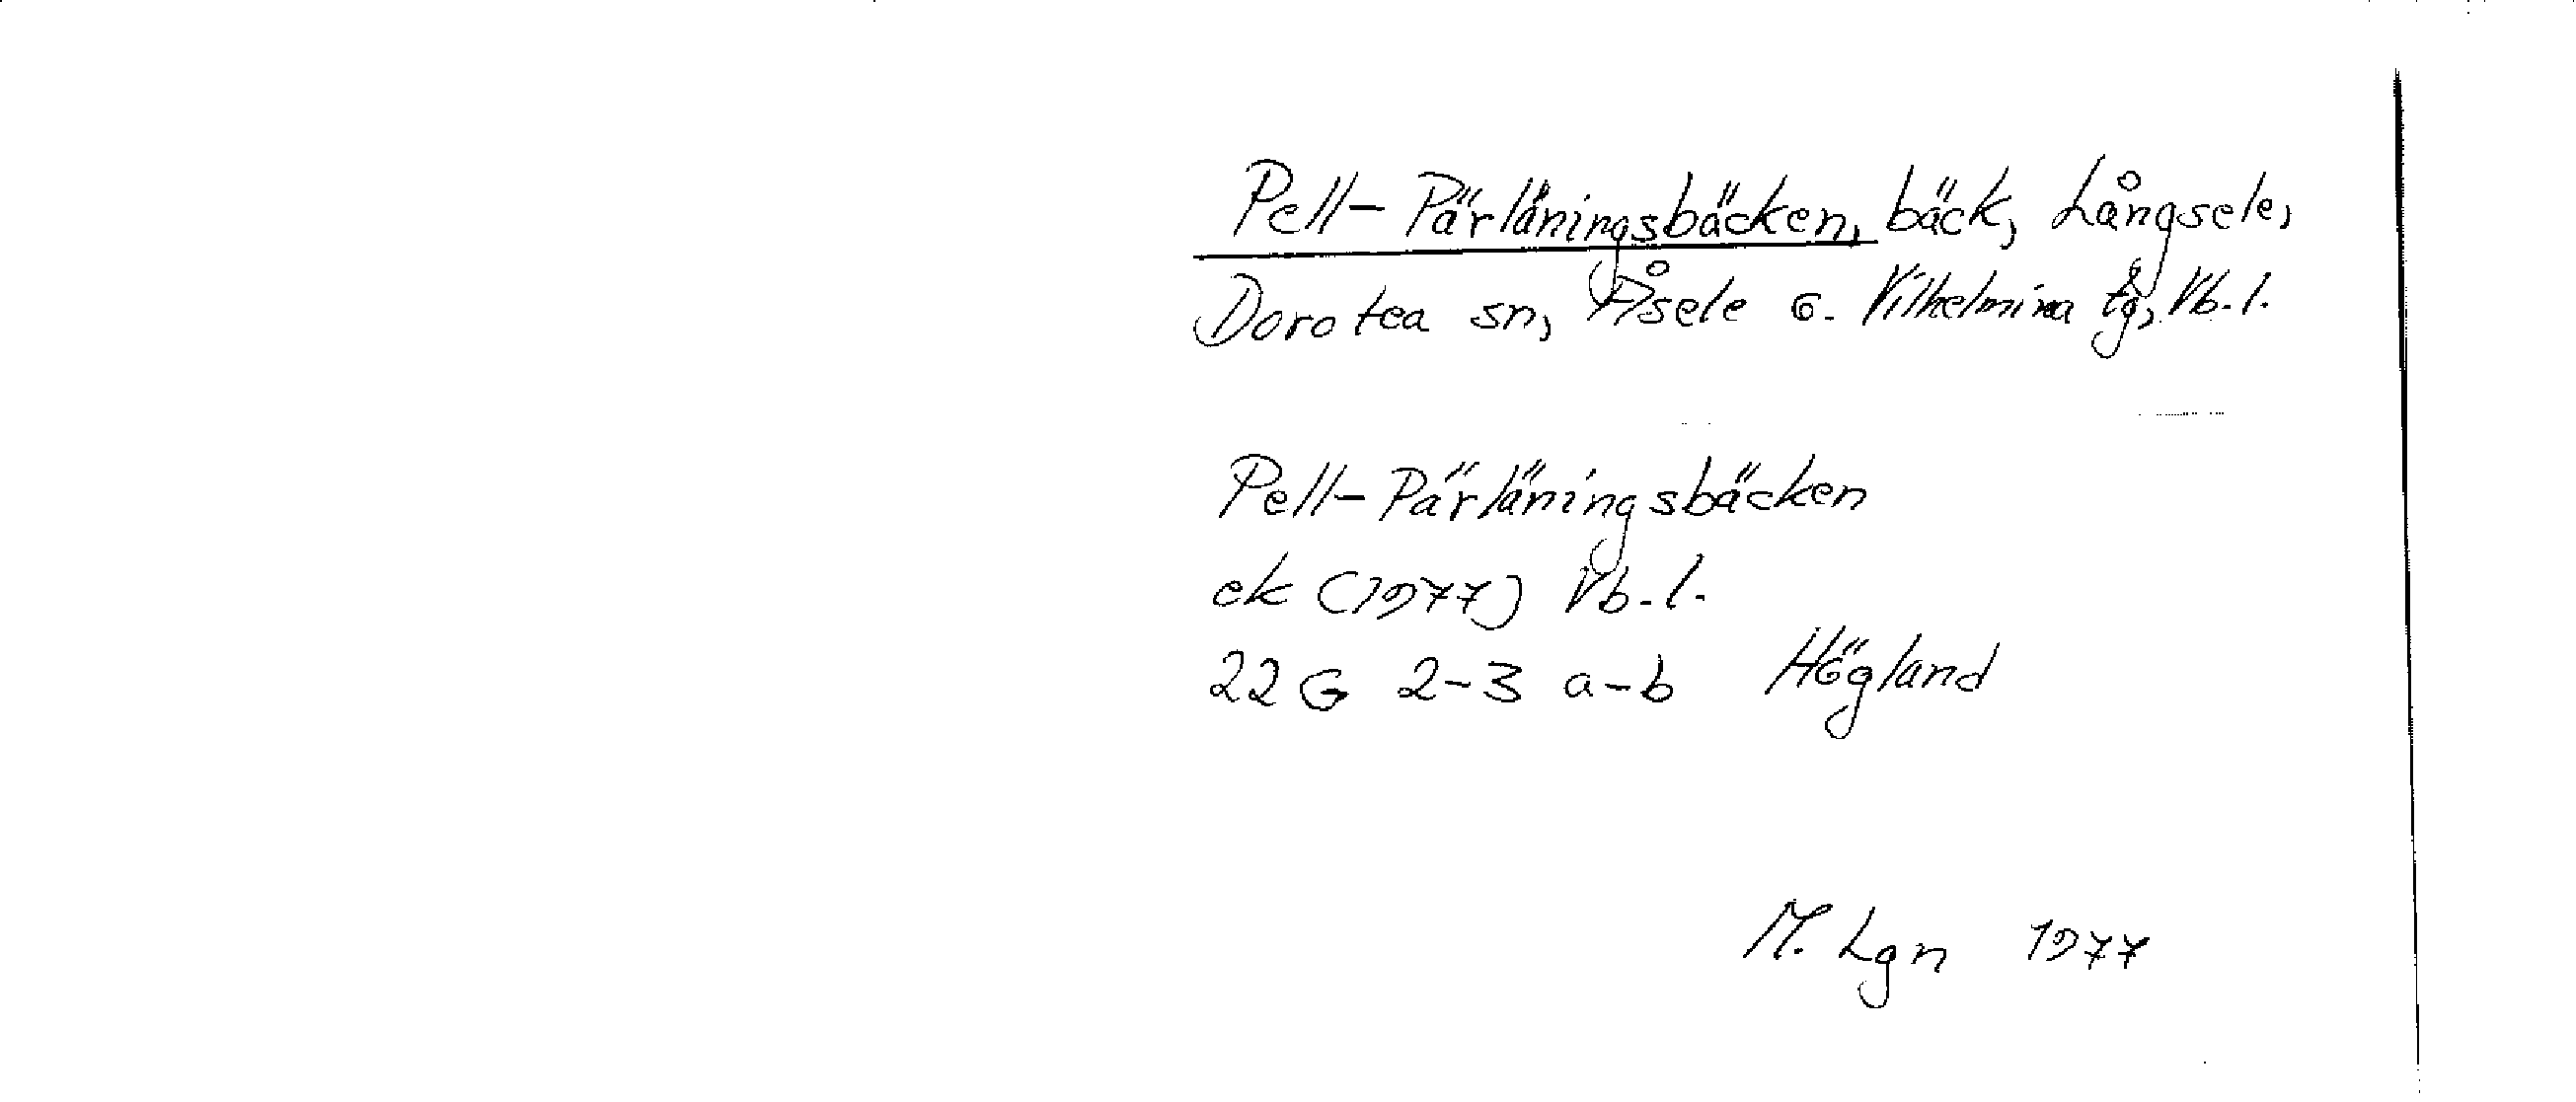 Pell-Pärläningsbäcken, bäck, Långsele,
Dorotea sn, Åsele o. Vilhelmina tg, Vb.l.
Pell-Pärläningsbäcken
ek (1977) Vb.l.
22 G 2-3 a-b Högland
M. Lgn 1977